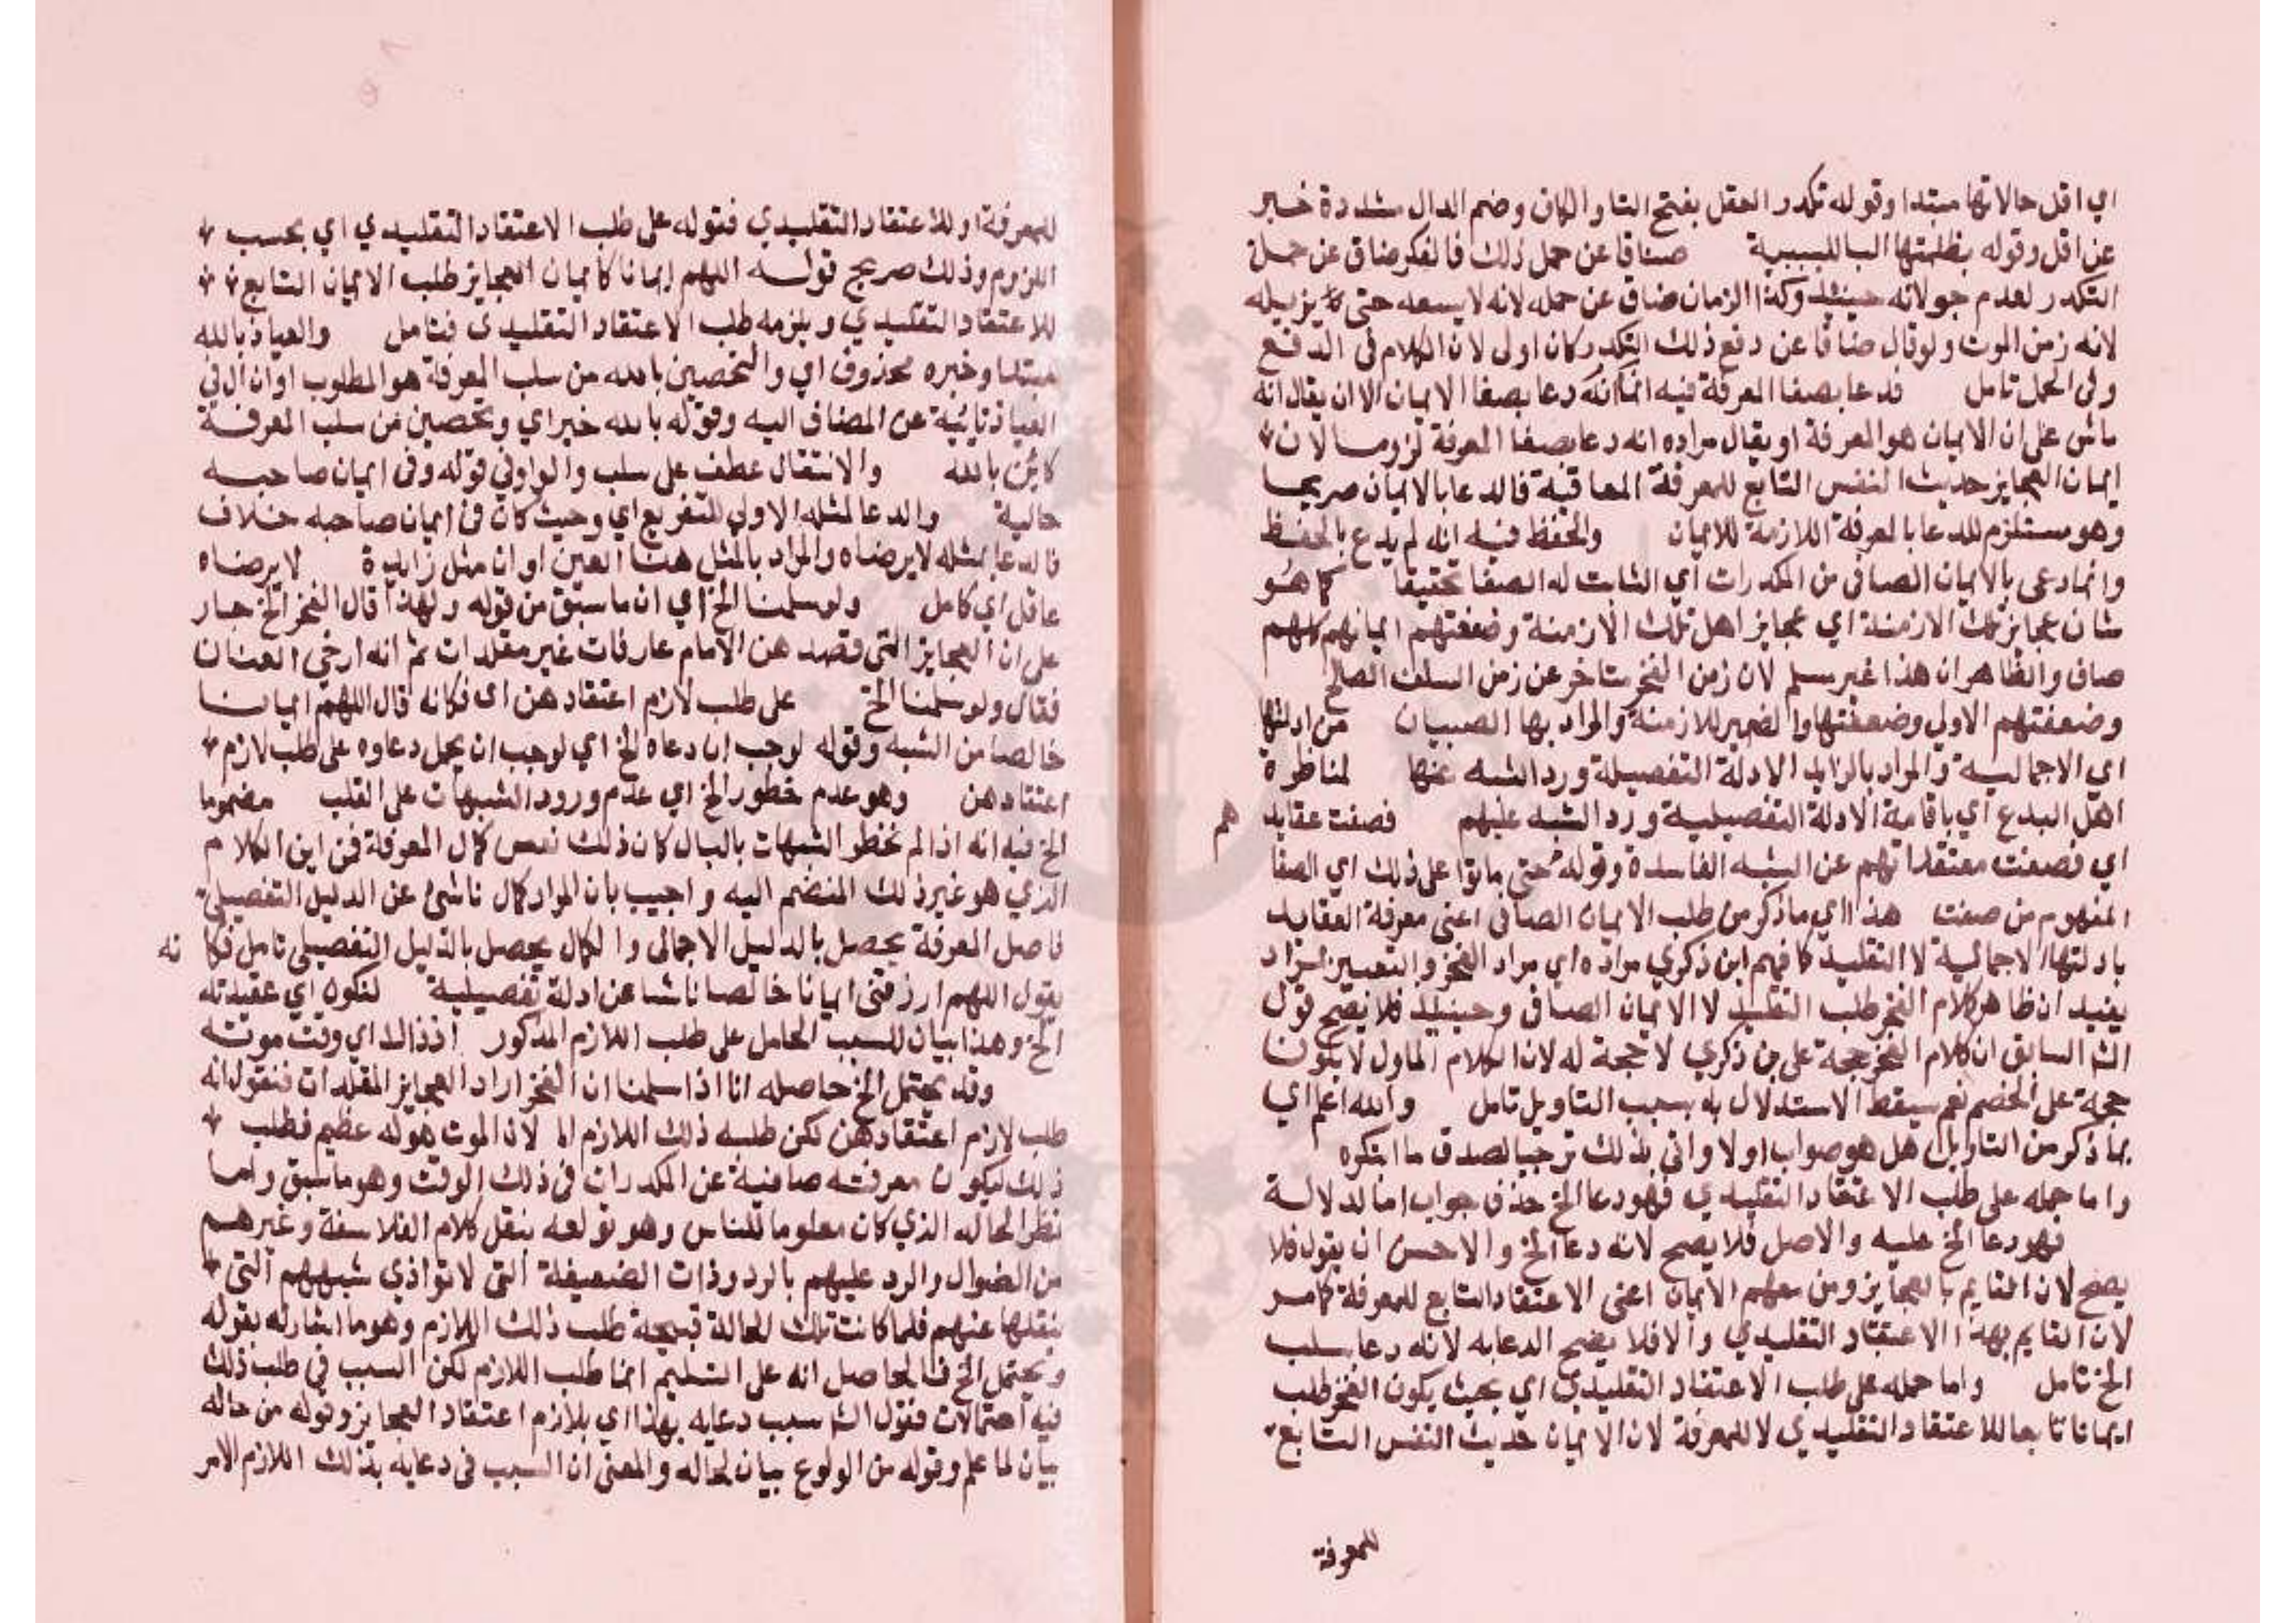 اي اقل حالاتها مبتدا وقوله تكدر العقل بفتح التا والكاف وضم الدال مشددة خبر
عن اقل وقوله بظلمتها البا للسببية ضاقا عن حمل ذلك فالفكر ضاق عن حمل
التكدر لعدم جولانه حينئذ وكذا الزمان ضاق عن حمله لانه لا يسعه حتى يزيله
لانه زمن الموت ولو قال ضاقا عن دفع ذلك التكدر كان اولى لان الكلام في الدفع
وفي الحمل تامل قد عا بصفا المعرفة فيه انما انه دعا بصفا الايمان الا ان يقال انه
ماش على ان الايمان هو المعرفة او يقال مراده انه دعا بصفا المعرفة لزوما لان
ايمان العجايز حديث النفس التابع للمعرفة المعاقبة فالدعا بالايمان صريحا
وهو مستلزم للدعا بالمعرفة اللازمة للايمان والحفظ فيه انه لم يدع بالحفظ
وانما دعى بالايمان الصافي من المكدرات اي الثابت له الصفا تحقيقا كما هو
شان عجايز تلك الازمنة اي عجايز اهل تلك الازمنة وضعفتهم ايمانهم كلهم
صاف والظاهر ان هذا غير مسلم لان زمن الفخر متاخر عن زمن السلف الصالح
وضعفتهم الاولي وضعفتها والضمير للازمنة والمراد بها الصبيان من ادلتها
اي الاجمالية والمراد بالزايد الادلة التفصيلة ورد الشبه عنها لمناظرة
اهل البدع اي باقامة الادلة التفصيلية ورد الشبه عليهم فصفت عقايد هم
اي فصفت معتقداتهم عن الشبه الفاسدة وقوله حتى ماتوا على ذلك اي الصفا
المفهوم من صفت هذا اي ما ذكر من طلب الايمان الصافي اعنى معرفة العقايد
بادلتها الاجمالية لا التقليد كما فهم ابن ذكري مراده اي مراد الفخر والتعبير بمراد
يفيد ان ظاهر كلام الفخر طلب التقليد لا الايمان الصافي وحينئذ فلا يصح قول
الشا السابق ان كلام الفخر حجة على بن ذكري لا حجة له لان الكلام الماول لا يكون
حجة على الخصم نعم سيقط الاستدلال به بسبب التاويل تامل والله اعلم اي
بما ذكر من التاويل هل هو صواب او لا واتى بذلك ترجيا لصدق ما ابتكره
واما حمله على طلب الاعتقاد التقليدي فهو دعا الخ حذف جواب اما لدلالة
فهو دعا الخ عليه والاصل فلا يصح لانه دعا الخ والاحسن ان يقول فلا
يصح لان القايم بالعجايز ومن معهم الايمان اعنى الاعتقاد التابع للمعرفة كما مر
لان القايم بهذا الاعتقاد التقليدي والا فلا يصح الدعا به لانه دعا بسلب
الخ تامل واما حمله على طلب الاعتقاد التقليدي اي بحيث يكون الفخر طلب
ايمانا تابعا للاعتقاد التقليدي لا للمعرفة لان الايمان حديث النفس التابع
للمعرفة
للمعرفة او للاعتقاد التقليدي فقوله على طلب الاعتقاد التقليدي اي بحسب
اللزوم وذلك صريح قوله اللهم ايمانا كايمان العجايز طلب الايمان التابع
للاعتقاد التقليدي ويلزمه طلب الاعتقاد التقليدى فتامل والعياذ بالله
مبتدا وخبره محذوف اي والتحصين بالله من سلب المعرفة هو المطلوب او ان ال في
العياذ نائبة عن المضاف اليه وقوله بالله خبر اي وتحصين من سلب المعرفة
كاين بالله والانتقال عطف على سلب والواو في قوله وفى ايمان صاحبه
حالية والدعا لمثله الاولي للتفريع اي وحيث كان في ايمان صاحبه خلاف
فالدعا بمثله لا يرضاه والمراد بالمثل هنا العين او ان مثل زايدة لا يرضاه
عاقل اي كامل ولو سلمنا الخ اي ان ما سبق من قوله ولهذا قال الفخر الخ جار
على ان العجايز التى قصد هن الامام عارفات غير مقلدات ثم انه ارخى العنان
فقال ولو سلمنا الخ على طلب لازم اعتقاد هن اى فكانه قال اللهم ايمانا
خالصا من الشبه وقوله لوجب ان دعاه الخ اي لوجب ان يحمل دعاوه على طلب لازم
اعتقاد هن وهو عدم خطور الخ اي عدم ورود الشبهات على القلب مضموما
الخ فيه انه اذا لم تخطر الشبهات بالبال كان ذلك نفس كمال المعرفة فمن اين الكلام
الذي هو غير ذلك المنضم اليه واجيب بان المراد كمال ناشئ عن الدليل التفصيلي
فاصل المعرفة يحصل بالدليل الاجمالى والكمال يحصل بالدليل التفصيلي تامل فكا نه
يقول اللهم ارزقني ايمانا خالصا ناشا عن ادلة تفصيلية لتكون اي عقيدته
الخ وهذا بيان للسبب الحامل على طلب اللازم المذكور اذ ذاك اي وقت موته
وقد يحتمل الخ حاصله انا اذا سلمنا ان الفخر اراد العجايز المقلدات فنقول انه
طلب لازم اعتقاد هن لكن طلبه ذلك اللازم اما لان الموت هوله عظيم فطلب
ذلك ليكون معرفته صافية عن المكدرات في ذلك الوقت وهو ما سبق واما
نظرا لحاله الذي كان معلوما للناس وهو تولعه بنقل كلام الفلاسفة وغيرهم
من الضوال والرد عليهم بالردودات الضعيفة التى لا توازي شبههم التى
ينقلها عنهم فلما كانت تلك الحالة قبيحة طلب ذلك اللازم وهو ما اشار له بقوله
ويحتمل الخ فالحاصل انه على التسليم انما طلب اللازم لكن السبب في طلب ذلك
فيه احتمالات فقول الشا سبب دعايه بهذا اي بلازم اعتقاد العجايز وقوله من حاله
بيان لما علم وقوله من الولوع بيان لحاله والمعنى ان السبب فى دعايه بذلك اللازم الامر